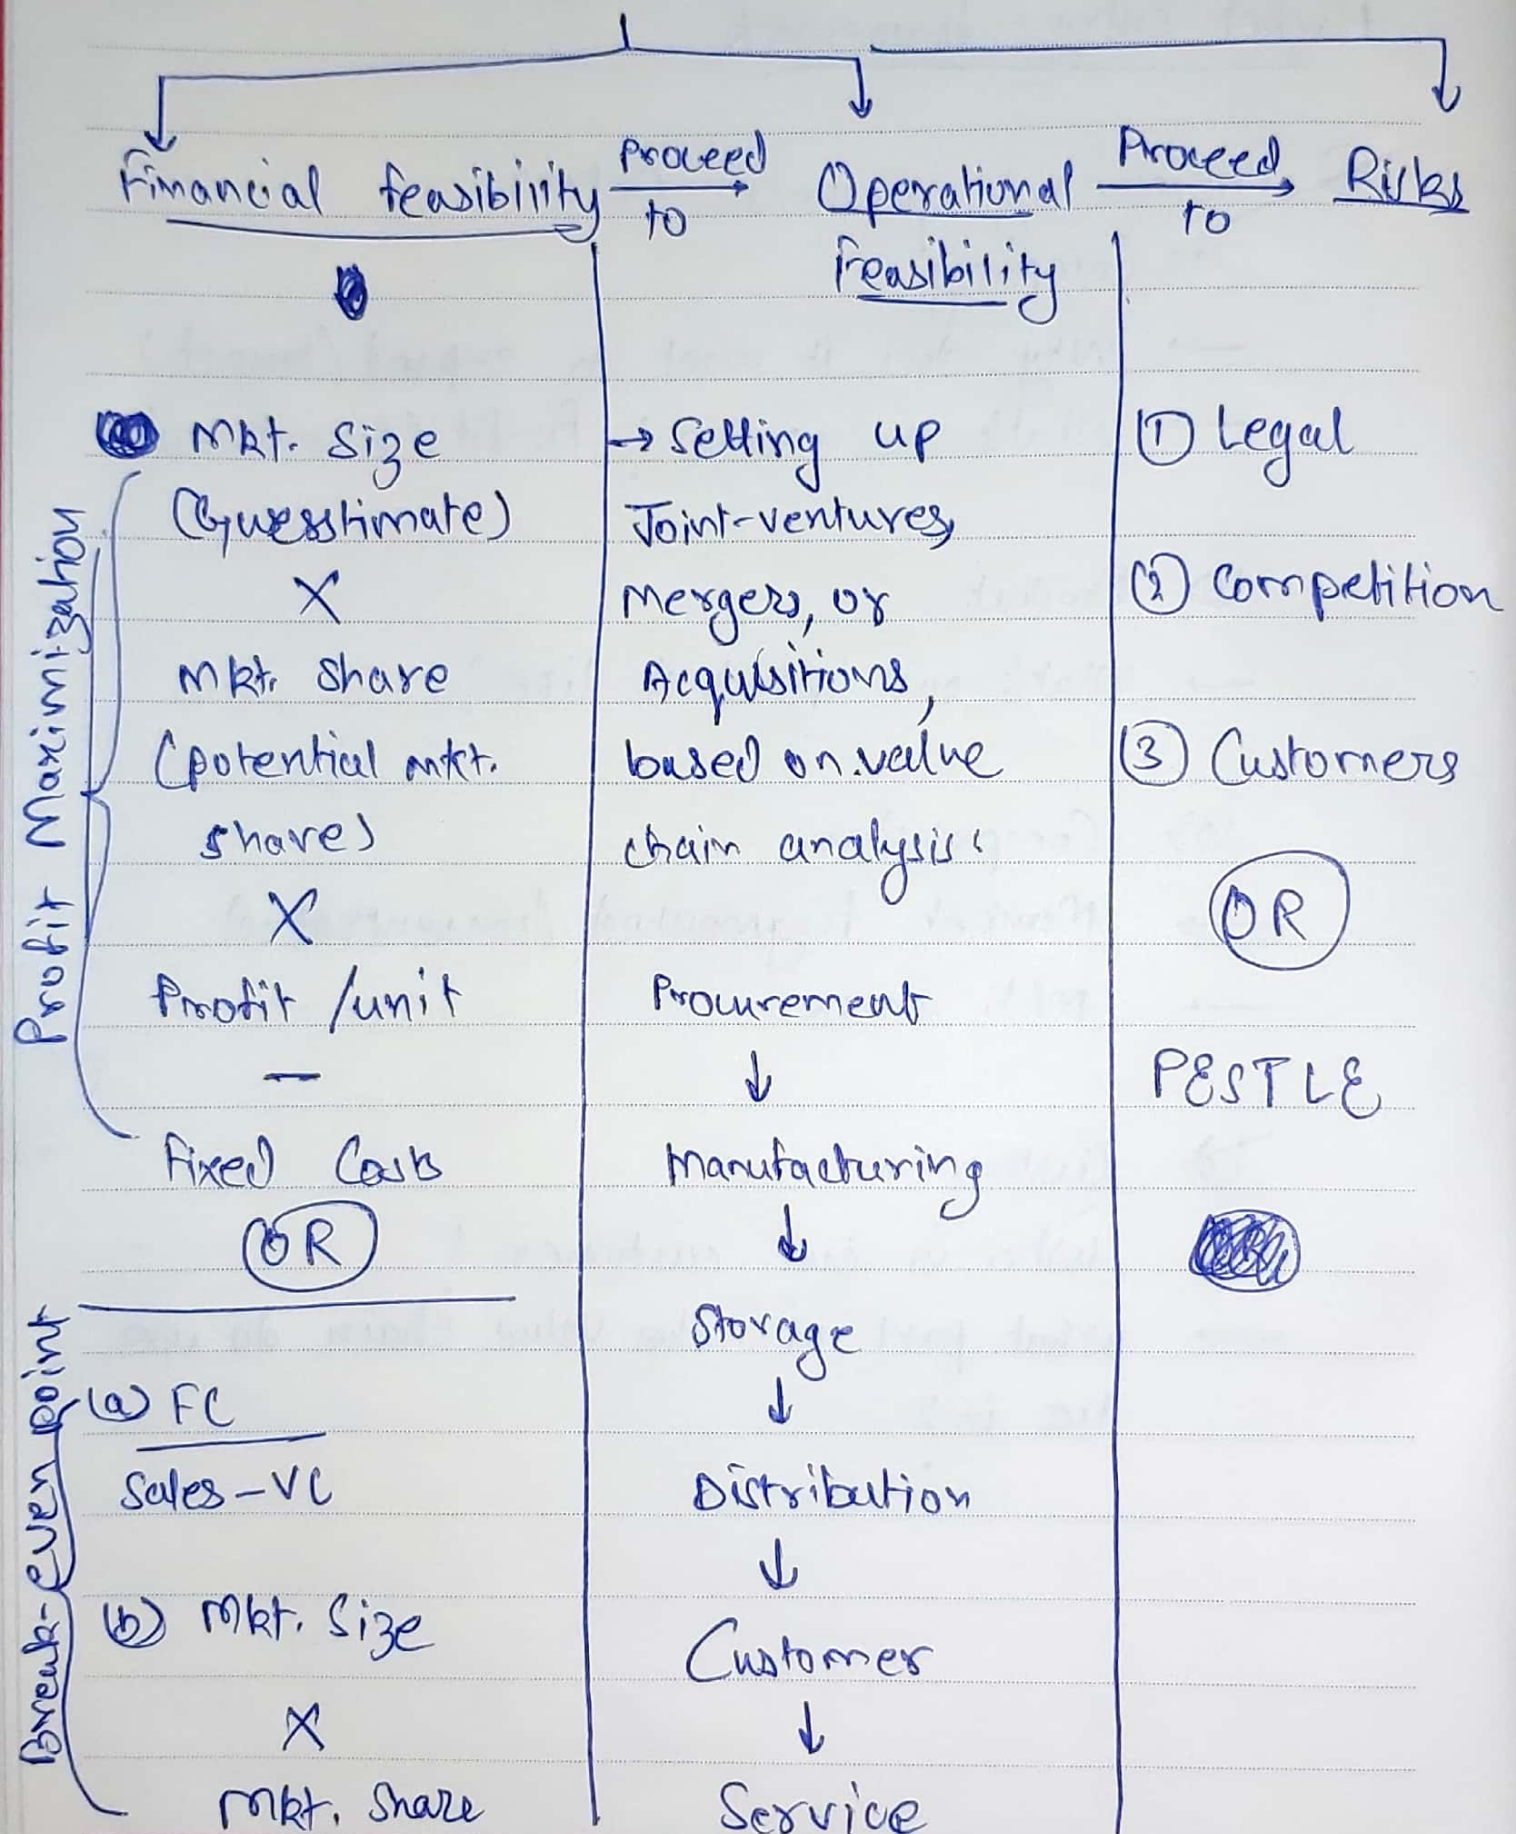 Financial feasibility
Proceed
to
Operational
Feasibility
Proceed
to
Risks
Profit Maximization
Mkt. Size
(Guesstimate)
X
Mkt. Share
(potential mkt.
share)
X
Profit /unit
—
Fixed Costs
OR
Break-even point
(a) FC
Sales - VC
(b) Mkt. Size
X
Mkt. Share
→ Setting up
Joint-ventures,
Mergers, or
Acquisitions,
based on value
chain analysis.
Procurement
↓
Manufacturing
↓
Storage
↓
Distribution
↓
Customer
↓
Service
① Legal
② Competition
③ Customers
OR
PESTLE